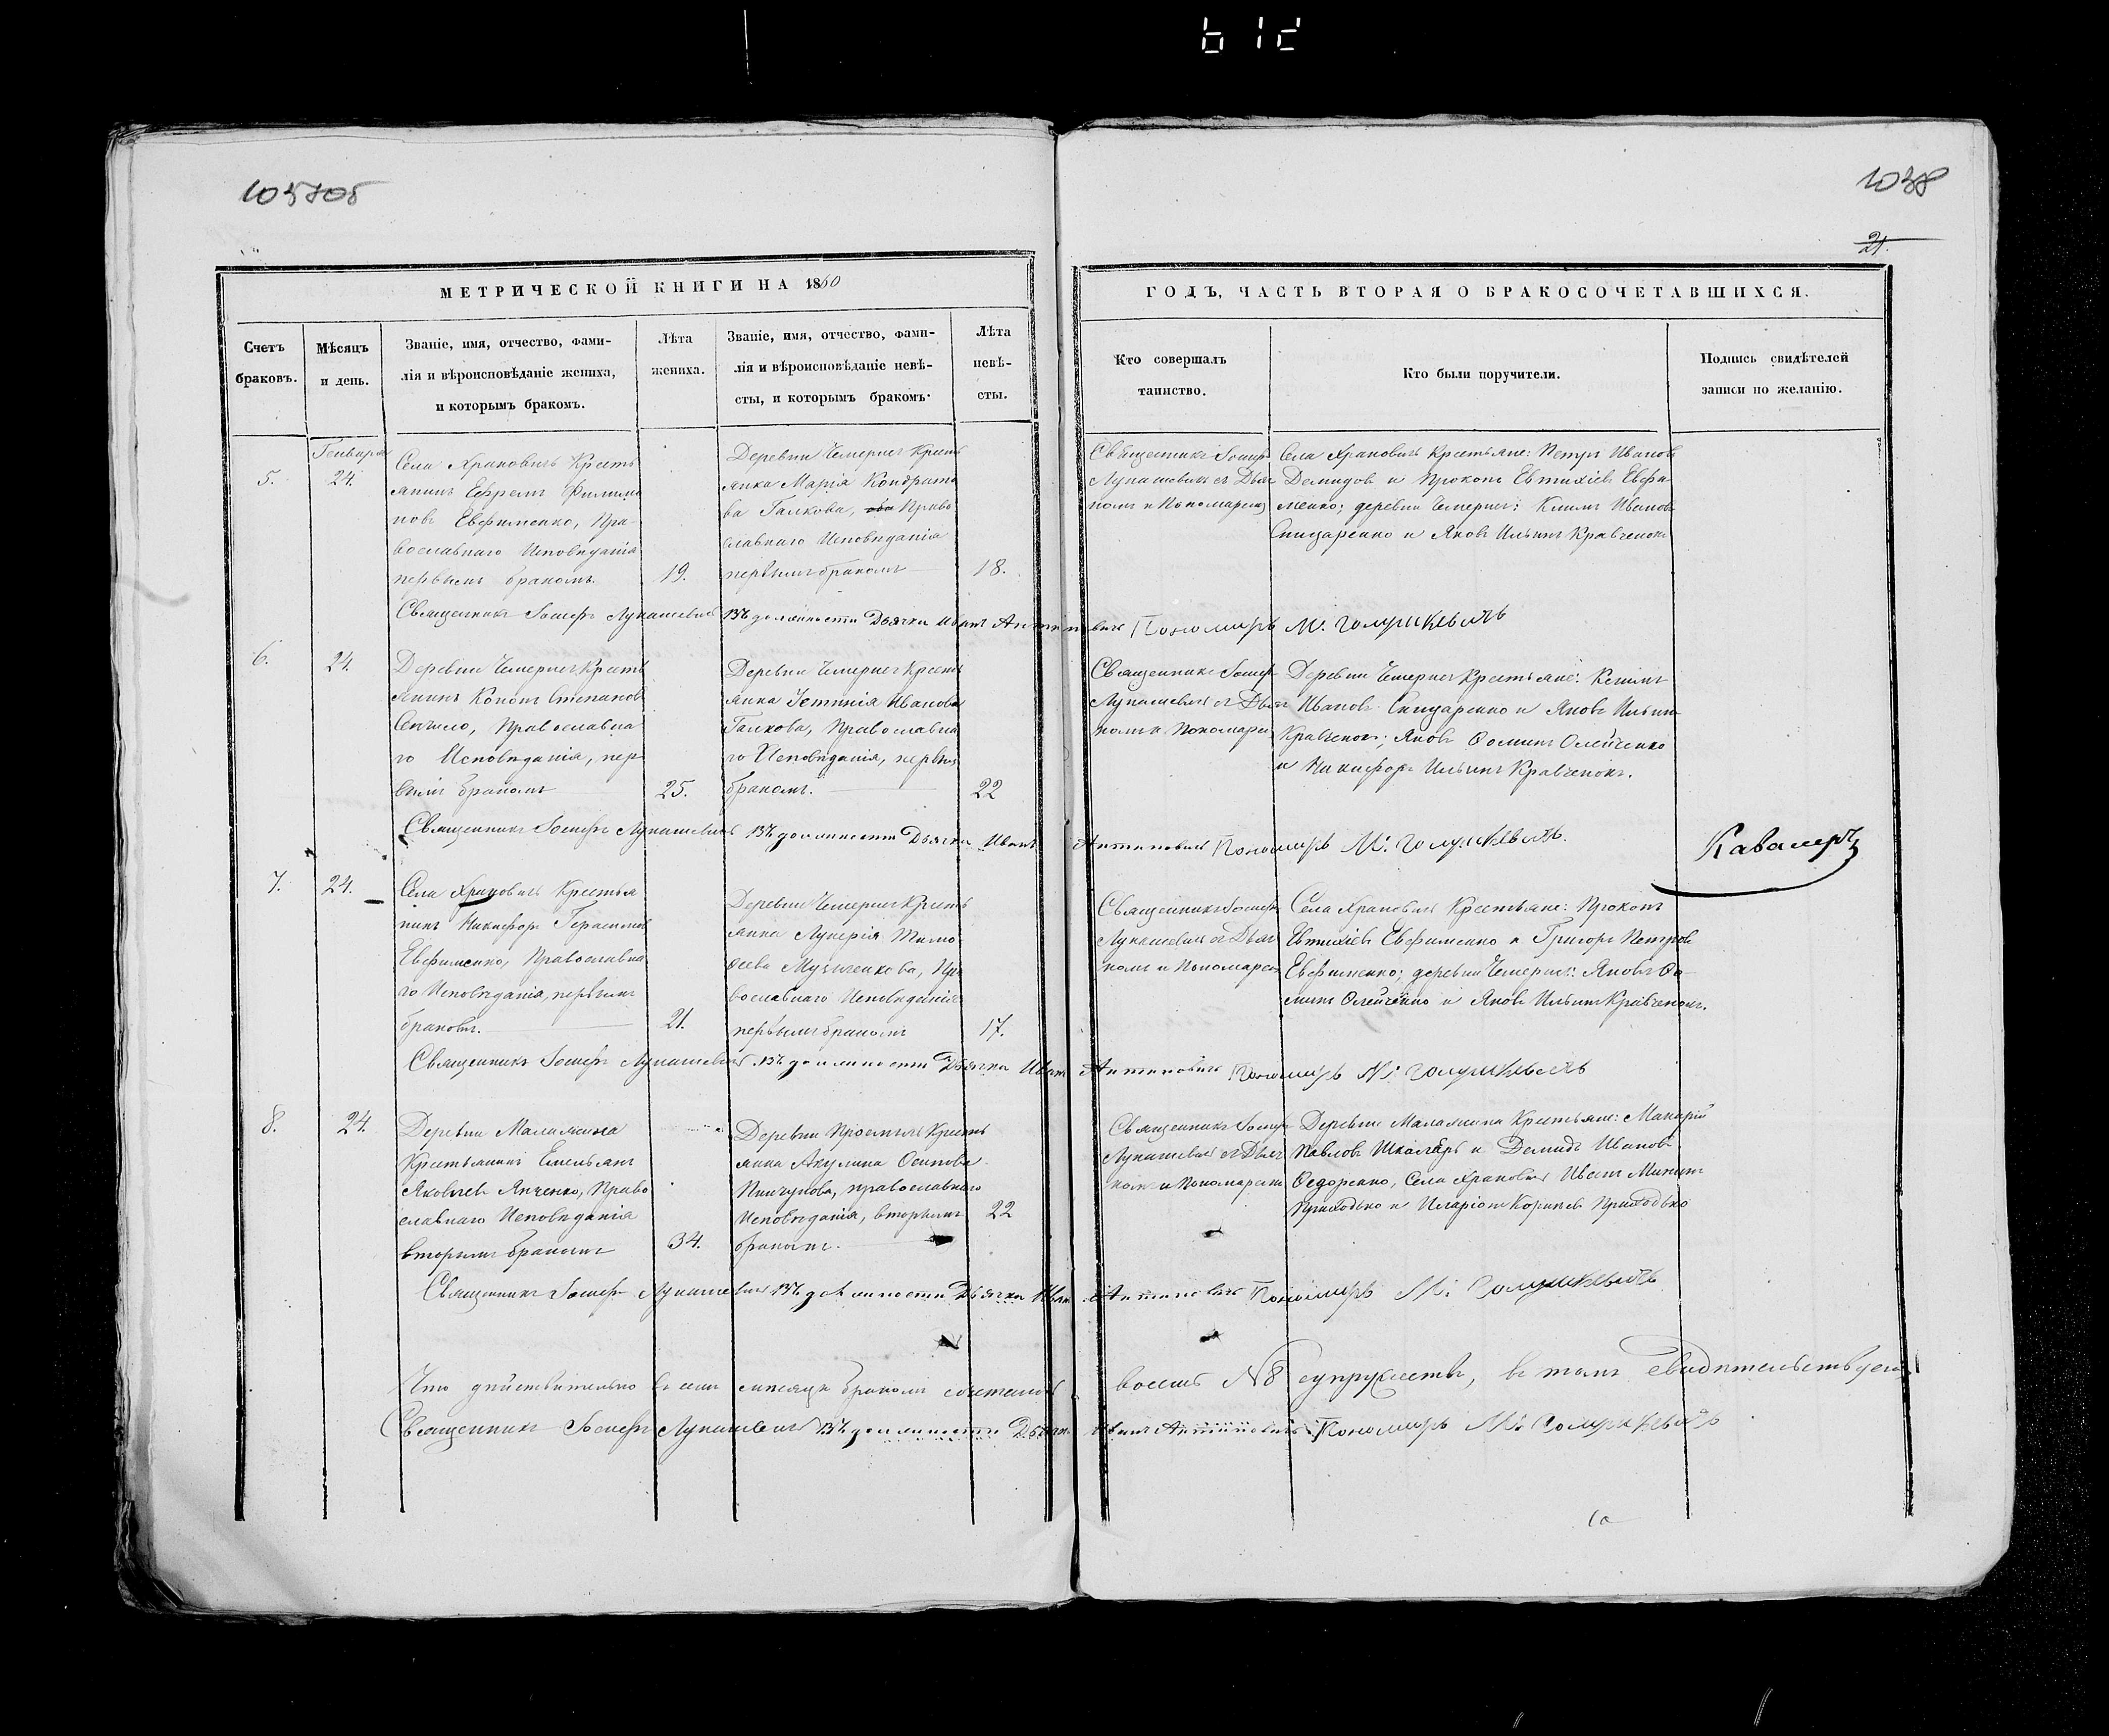 612
105705
1038
21.
МЕТРИЧЕСКОЙ КНИГИ НА 1860
ГОДЪ, ЧАСТЬ ВТОРАЯ О БРАКОСОЧЕТАВШИХСЯ.
Счетъ браковъ.
Мѣсяцъ и день.
Званіе, имя, отчество, фами-
лія и вѣроисповѣданіе жениха,
и которымъ бракомъ.
Лѣта
жениха.
Званіе, имя, отчество, фами-
лія и вѣроисповѣданіе невѣ-
сты, и которымъ бракомъ.
Лѣта
невѣ-
сты.
Кто совершалъ
таинство.
Кто были поручители.
Подпись свидѣтелей
записи по желанію.
5.
Генваря
24.
Села Храповичъ Кресть
янинъ Ефремъ Филипо
повъ Евфименко, Пра-
вославнаго Исповѣданія
первымъ бракомъ.
19.
Деревни Чемернъ Кресть
янка Марія Кондрато
ва Галкова, Право
славнаго Исповѣданія
первымъ бракомъ
18.
Священникъ Іосифъ
Лукашевичъ съ Дьяч
комъ и Пономаремъ
Села Храповичъ Крестьяне: Петръ Ивановъ
Демидовъ и Прокопъ Евтихіевъ Евфи
менко; деревни Чемернъ: Климъ Ивановъ
Спидаренко и Яковъ Ильинъ Кравченокъ
Священникъ Іосифъ Лукашевичъ Въ должности Дьячка Иванъ Антиповичъ Пономарь М. Голушкевичъ
6.
24.
Деревни Чемернъ Кресть
янинъ Кононъ Степановъ
Православна
го Исповѣданія, пер
вымъ бракомъ
25.
Деревни Чемернъ Кресть
янка Устинія Иванова
Галкова, Православна
го Исповѣданія, первымъ
бракомъ.
22
Священникъ Іосифъ
Лукашевичъ съ Дьяч
комъ и Пономаремъ
Деревни Чемернъ Крестьяне: Климъ
Ивановъ Спидаренко и Яковъ Ильинъ
Кравченокъ; Яковъ Ѳоминъ Олейченко
и Никифоръ Ильинъ Кравченокъ.
Священникъ Іосифъ Лукашевичъ Въ должности Дьячка Иванъ Антиповичъ Пономарь М. Голушкевичъ.
Кавалеръ
7.
24.
Села Храповичъ Крестья
нинъ Никифоръ Герасимовъ
Евфименко, Православна
го Исповѣданія, первымъ
бракомъ.
21.
Деревни Чемернъ Кресть
янка Лукерія Тимо
ѳеева Музыченкова, Пра
вославнаго Исповѣданія
первымъ бракомъ
17.
Священникъ Іосифъ
Лукашевичъ съ Дьяч
комъ и Пономаремъ
Села Храповичъ Крестьяне: Прокопъ
Евтихіевъ Евфименко и Григоръ Петровъ
Евфименко; деревни Чемернъ: Яковъ Ѳо-
минъ Олейченко и Яковъ Ильинъ Кравченокъ.
Священникъ Іосифъ Лукашевичъ Въ должности Дьячка Иванъ Антиповичъ Пономарь М: Голушкевичъ
8.
24.
Деревни Маламина
Крестьянинъ Емельянъ
Яковлевъ Янченко, Право
славнаго Исповѣданія
вторымъ бракомъ
34.
Кресть
янка Акулина Осипова
Пинчукова, православнаго
Исповѣданія, вторымъ
бракомъ.
22
Священникъ Іосифъ
Лукашевичъ съ Дьяч
комъ и Пономаремъ
Деревни Маламина Крестьяне: Макарій
Павловъ Шкаляръ и Демидъ Ивановъ
Ѳедоренко, Села Храповичъ Иванъ Микитинъ
Приходько и Иларіонъ Корніевъ Приходько
Священникъ Іосифъ Лукашевичъ Въ должности Дьячка Иванъ Антиповичъ Пономарь М: Голушкевичъ
Что дѣйствительно въ семъ мѣсяцѣ бракомъ сочеталось восемь №8 супружествъ, въ томъ свидѣтельствуемъ
Священникъ Іосифъ Лукашевичъ Въ должности Дьячка Иванъ Антиповичъ Пономарь М: Голушкевичъ